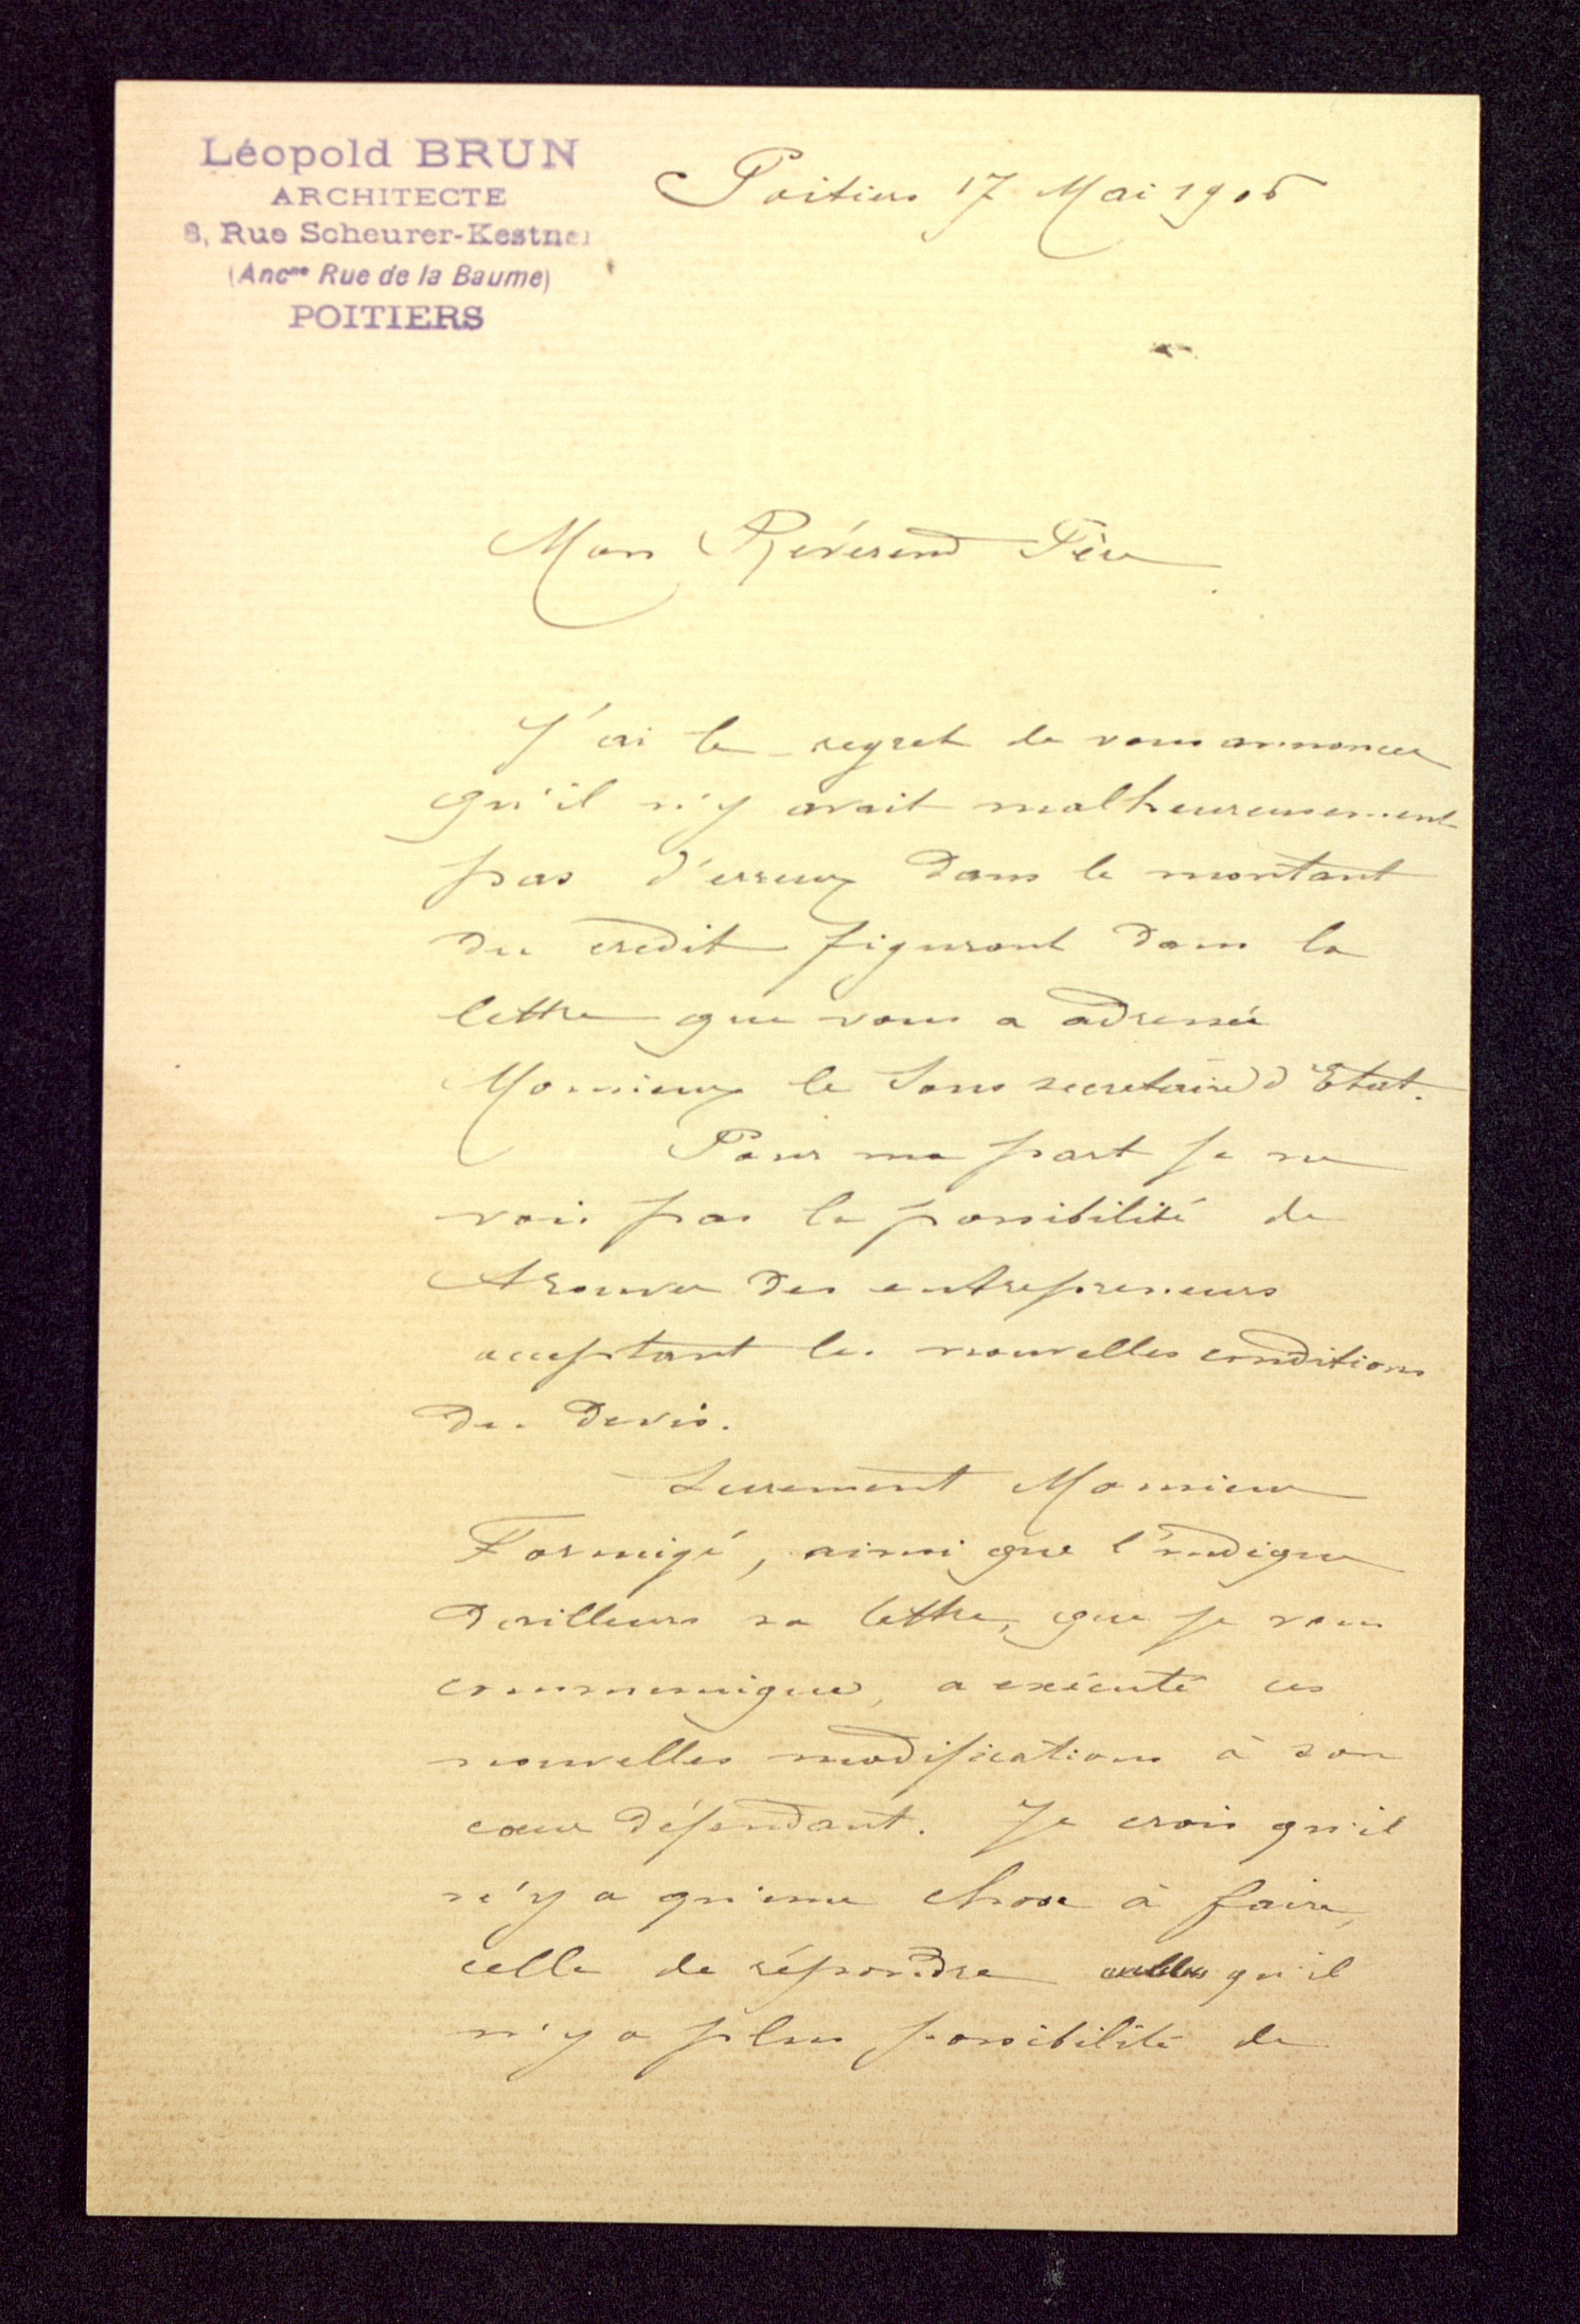 Léopold BRUN
ARCHITECTE
8, Rue Scheurer-Kestner
(Ancne Rue de la Baume)
POITIERS
Poitiers 17 Mai 1906
Mon Révérend Père
J'ai le regret de vous annoncer
qu'il n'y avait malheureusement
pas d'erreur dans le montant
du credit figurant dans la
lettre que vous a adressée
Monsieur le Sous secretaire d'Etat.
Pour ma part je ne
vois pas la possibilité de
trouver des entrepreneurs
acceptant les nouvelles conditions
du devis.
Surement Monsieur
Formigé, ainsi que l'indique
d'ailleurs sa lettre, que je vous
communique, a exécuté ces
nouvelles modifications à son
cœur défendant. Je crois qu'il
n'y a qu'une chose à faire,
celle de répondre qu'il
n'y a plus possibilité de